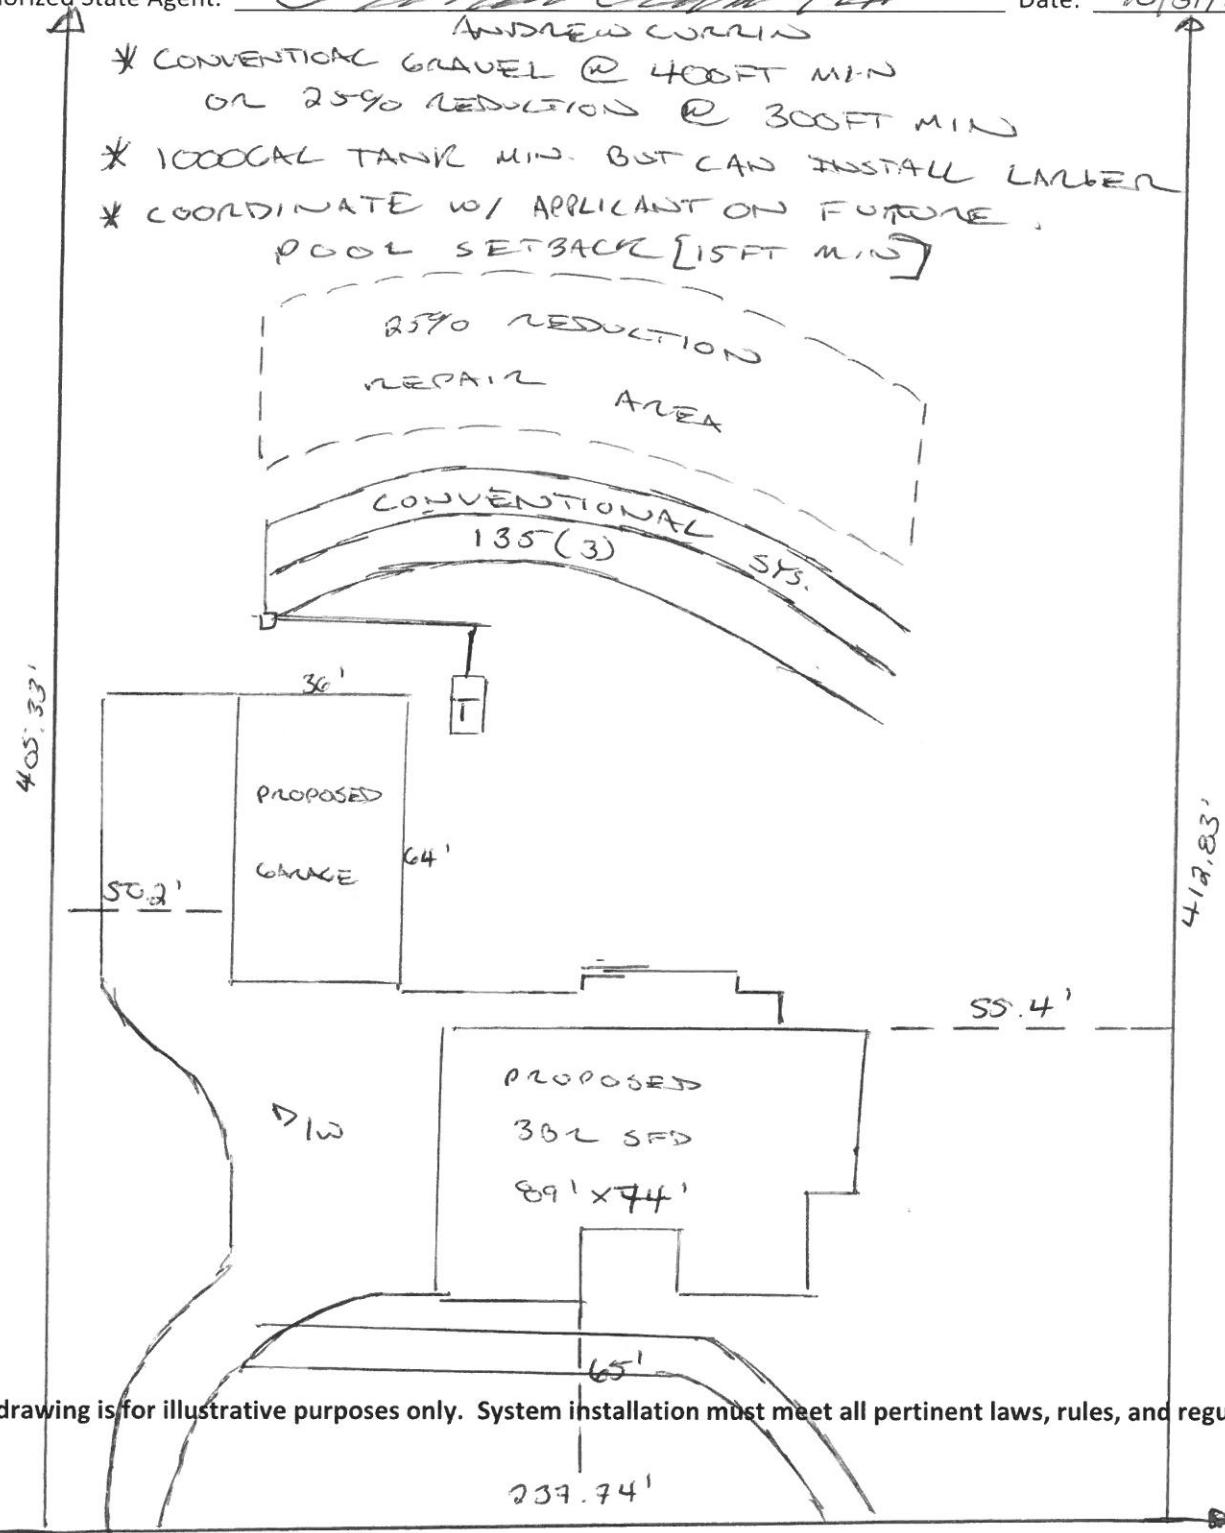 orized State Agent: Date:
ANDREW CURRIN
* CONVENTIOAL GRAVEL @ 400FT MIN
OR 25% REDUCTION @ 300FT MIN
* 1000GAL TANK MIN. BUT CAN INSTALL LARGER
* COORDINATE W/ APPLICANT ON FUTURE
POOL SETBACK [15FT MIN]
25% REDUCTION
REPAIR AREA
CONVENTIONAL SYS.
135(3)
36'
T
405.33'
PROPOSED
GARAGE
64'
50.2'
412.83'
55.4'
PROPOSED
3BR SFD
89' x 74'
D/W
65'
drawing is for illustrative purposes only. System installation must meet all pertinent laws, rules, and regu
237.74'